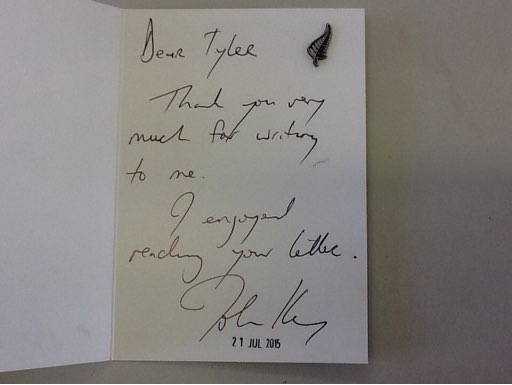 Dear Tyler
Thank you very
much for writing
to me.
I enjoyed
reading your letter.
John Key
21 JUL 2015